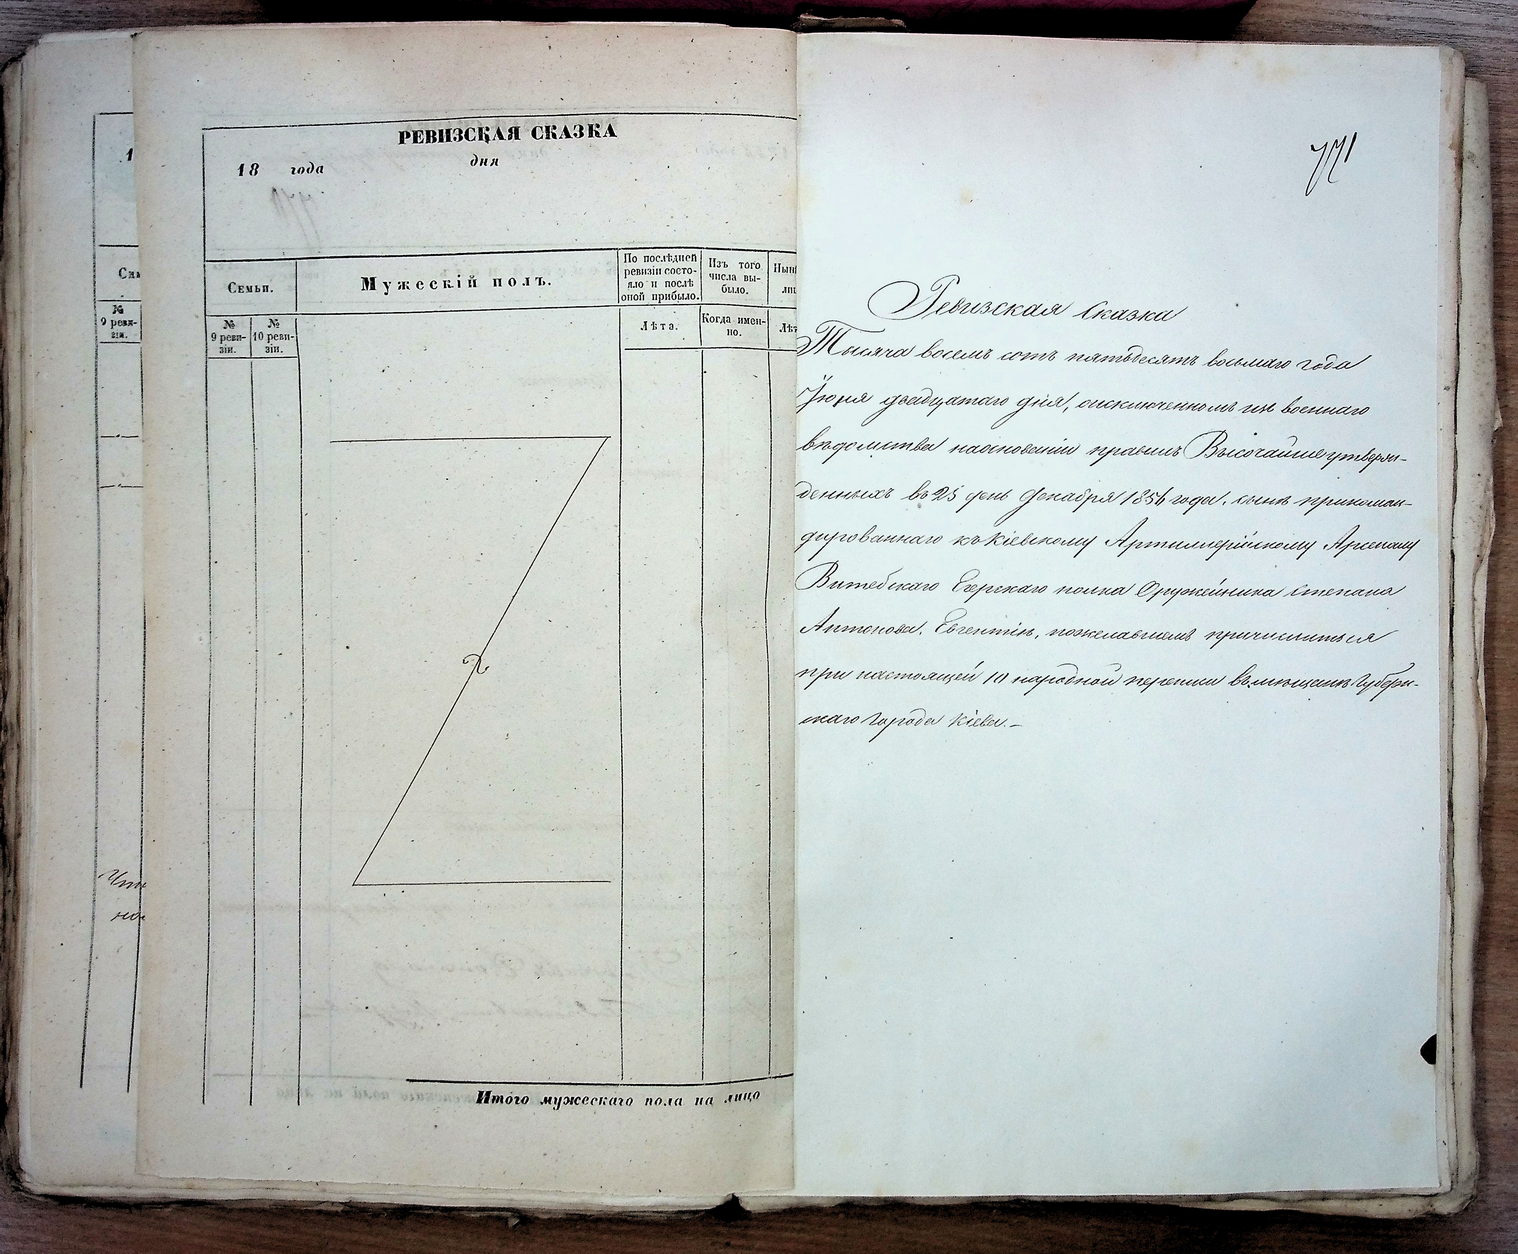 РЕВИЗСКАЯ СКАЗКА
18 года дня
Семьи.
Мужескій полъ.
По послѣдней ревизіи состо-
яло и послѣ
оной прибыло.
Изъ того
числа вы-
было.
№
9 реви-
зіи.
№
10 реви-
зіи.
Лѣта.
Когда имен-
но.
Итого мужескаго пола на лицо
771
Ревизская Сказка
Тысяча восемь сотъ пятьдесятъ восьмаго года
Іюня двадцатаго дня, оисключенномъ изъ военнаго
вѣдомства наоснованіи правилъ Высочайше утверж-
денныхъ въ 25 день Декабря 1856 года, сынѣ прикоман-
дированнаго къ Кіевскому Артиллерійскому Арсеналу
Витебскаго Егерскаго полка Оружейника Степана
Антонова, Евгентіи, пожелавшемъ причислиться
при настоящей 10 народной переписи въ мещане Губерн-
скаго города Кіева.—